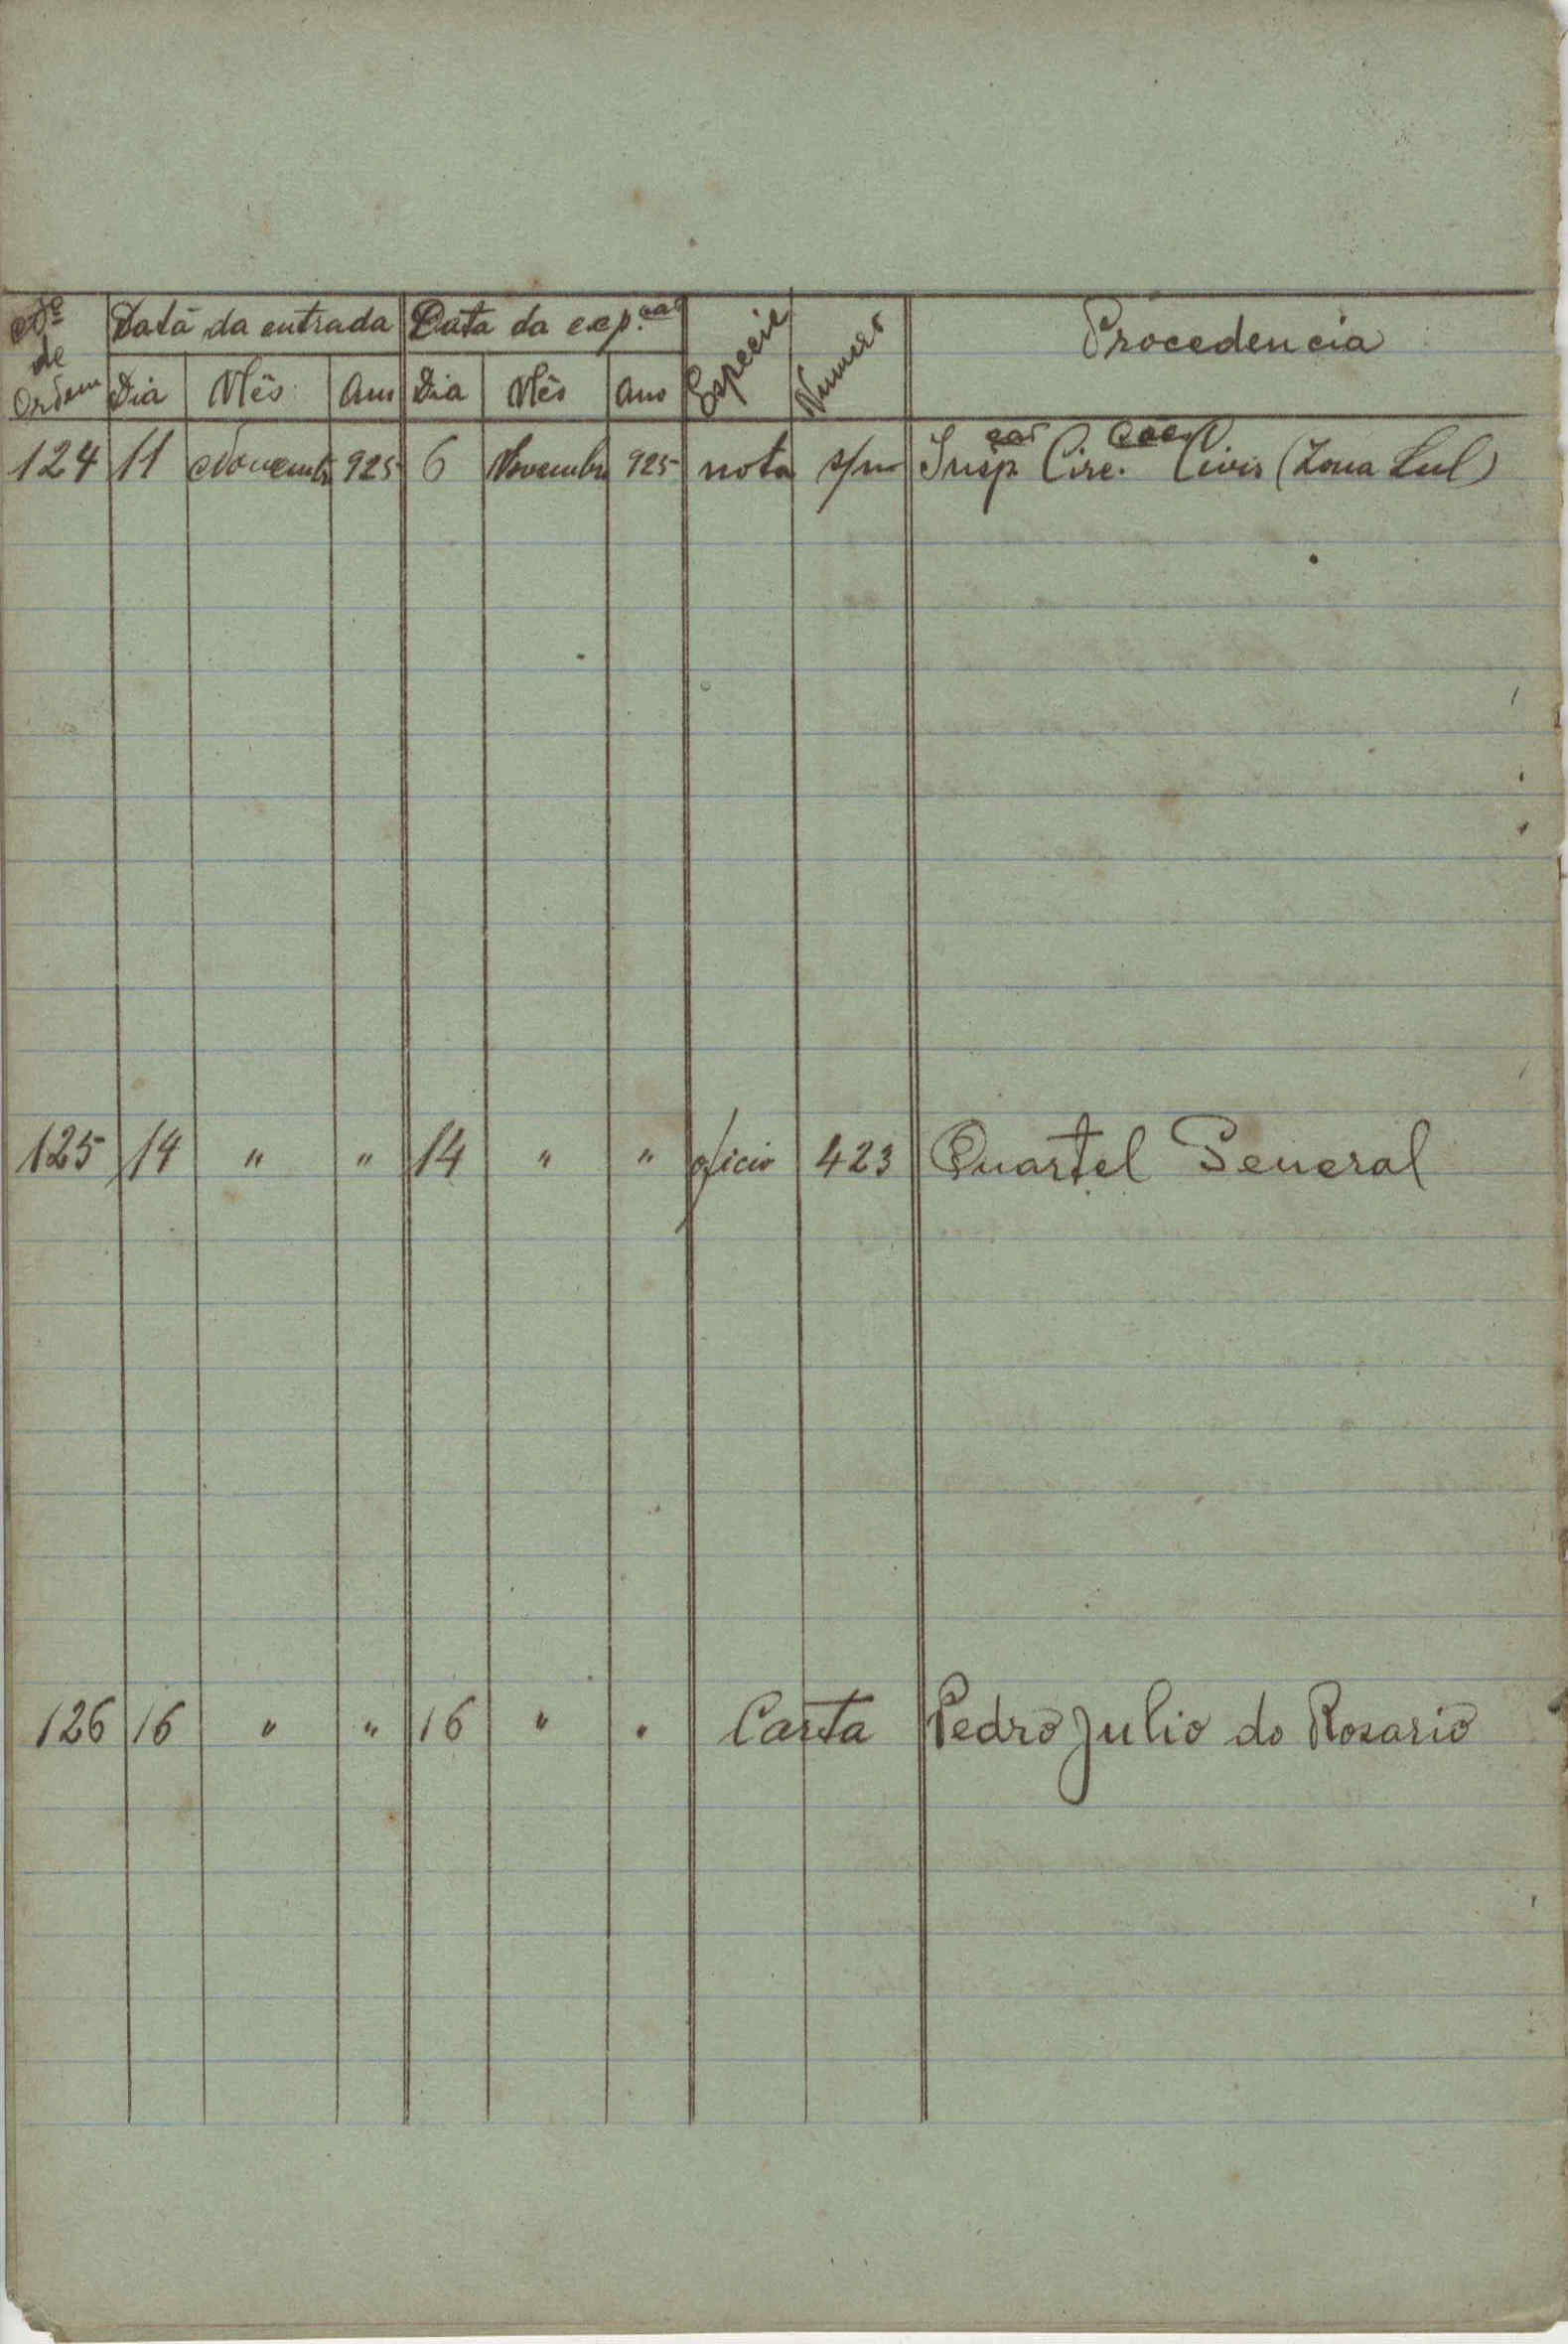 Nº de Ordem | Data da entrada | Data da exp.ção | Especie | Numero | Procedencia
Dia | Mês | Ano | Dia | Mês | Ano
124 | 11 | Novembro | 925 | 6 | Novembro | 925 | nota | s/n | Insp.ção Circ.ções Civis (Zona Sul)
125 | 14 | " | " | 14 | " | " | oficio | 423 | Quartel General
126 | 16 | " | " | 16 | " | " | Carta | Pedro Julio do Rosario